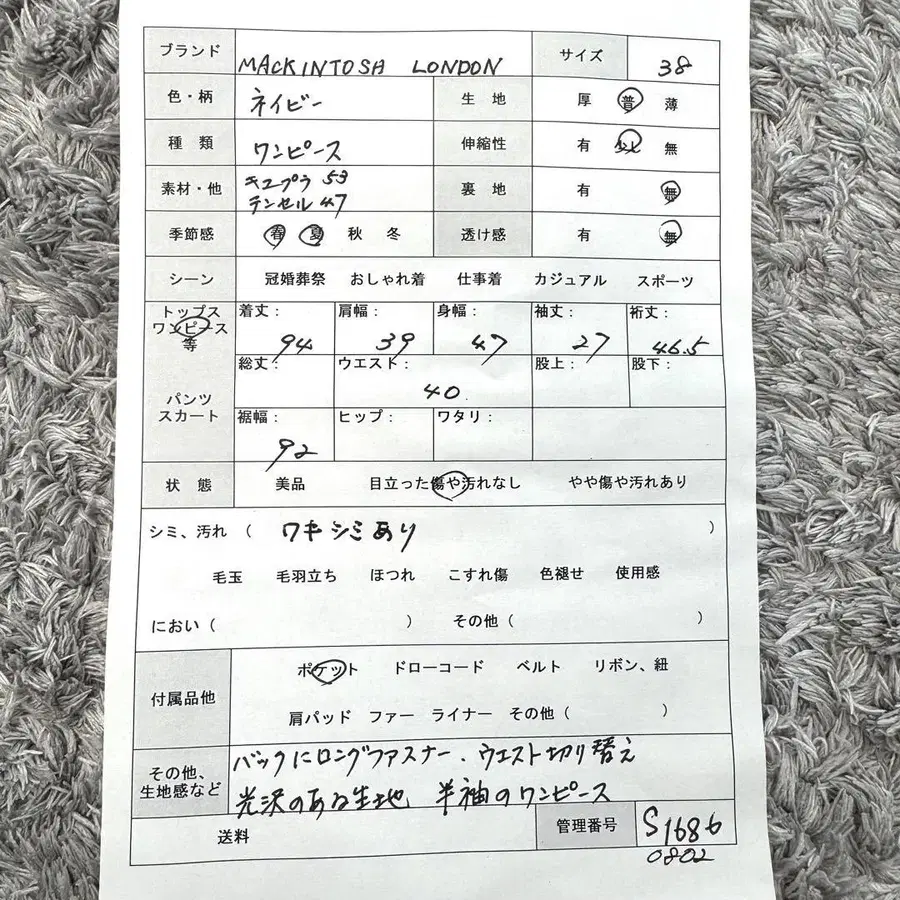 ブランド MACKINTOSH LONDON サイズ 38
色・柄 ネイビー 生 地 厚 普 薄
種 類 ワンピース 伸縮性 有 少し 無
素材・他 キュプラ 53 裏 地 有 無
テンセル 47
季節感 春 夏 秋 冬 透け感 有 無
シーン 冠婚葬祭 おしゃれ着 仕事着 カジュアル スポーツ
トップス 着丈： 肩幅： 身幅： 袖丈： 裄丈：
ワンピース
等 94 39 47 27 46.5
総丈： ウエスト： 股上： 股下：
パンツ 40
スカート 裾幅： ヒップ： ワタリ：
92
状 態 美品 目立った傷や汚れなし やや傷や汚れあり
シミ、汚れ （ ワキシミあり ）
毛玉 毛羽立ち ほつれ こすれ傷 色褪せ 使用感
におい（ ） その他（ ）
付属品他 ポケット ドローコード ベルト リボン、紐
肩パッド ファー ライナー その他（ ）
その他、 バックにロングファスナー、ウエスト切り替え
生地感など 光沢のある生地 半袖のワンピース
送料 管理番号 S1686
0802